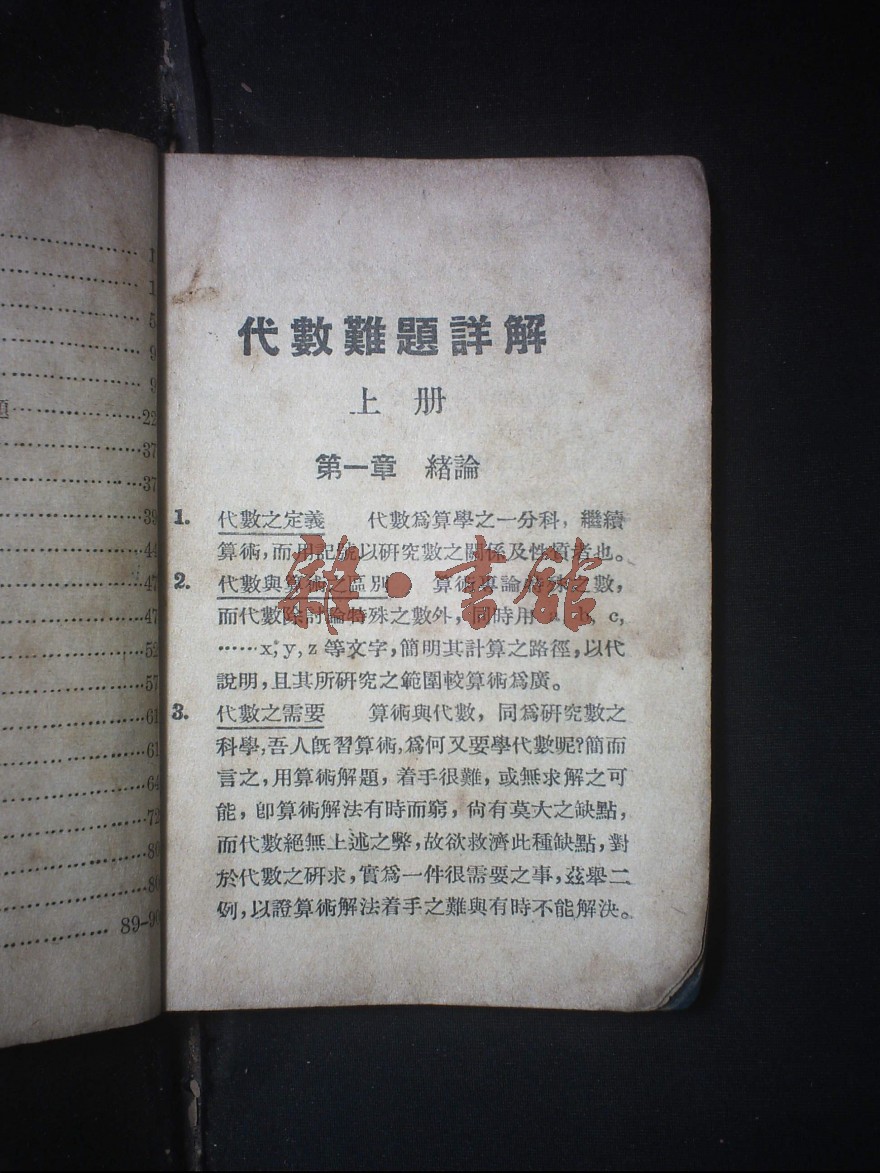 代數難題詳解
上册
第一章 緒論
1. 代數之定義 代數爲算學之一分科，繼續
算術，而用記號以研究數之關係及性質者也。
2. 代數與算術之區別 算術專論特殊之數，
而代數除討論特殊之數外，同時用 a, b, c,
……x, y, z 等文字，簡明其計算之路徑，以代
說明，且其所研究之範圍較算術爲廣。
3. 代數之需要 算術與代數，同爲研究數之
科學，吾人旣習算術，爲何又要學代數呢？簡而
言之，用算術解題，着手很難，或無求解之可
能，卽算術解法有時而窮，尙有莫大之缺點，
而代數絕無上述之弊，故欲救濟此種缺點，對
於代數之研求，實爲一件很需要之事，茲舉二
例，以證算術解法着手之難與有時不能解決。
雜·書館
1
1
5
9
9
題 22
37
37
39
44
47
47
52
57
61
61
64
72
80
80
89-90